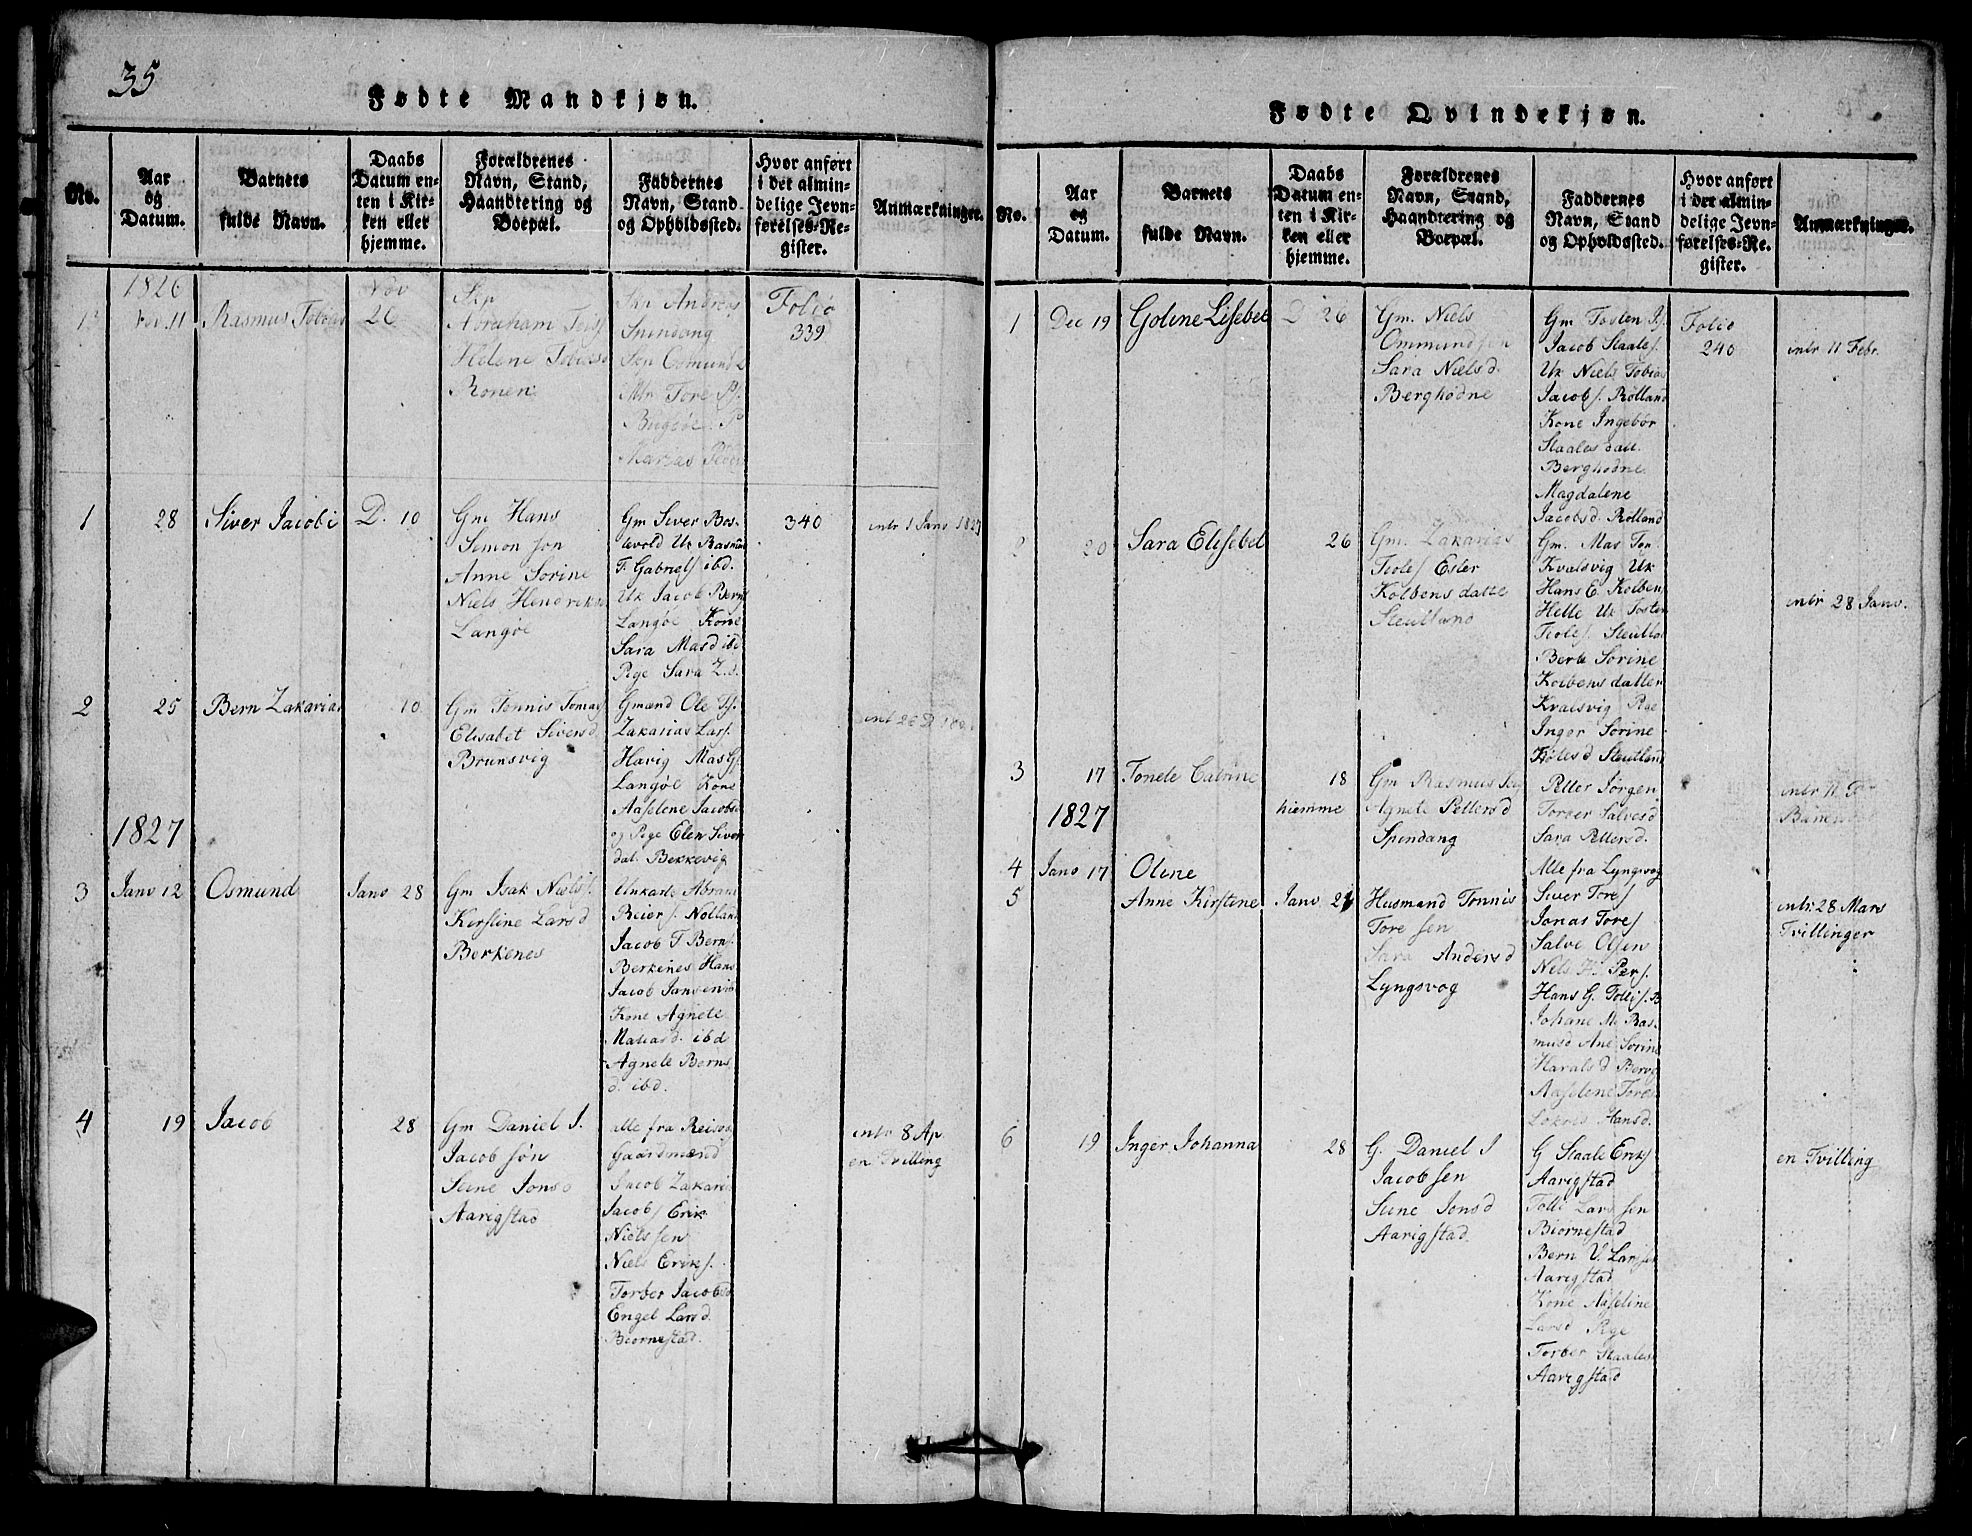 35
Fødte Mandkjøn.
No.
Aar
og
Datum.
Barnets
fulde Navn.
Daabs
Datum en-
ten i Kir-
ken eller
hjemme.
Forældrenes
Navn, Stand,
Haandtering og
Boepæl.
Faddernes
Navn, Stand
og Opholdssted.
Hvor anført
i det almin-
delige Jevn-
førelses-Re-
gister.
Anmærkninger.
1826
Nov. 11
Rasmus Tobias
Nov
26
Abraham
Helene Tobiasd
Ronen
Andreas
Spindang
Osmund
Tore
Folio
339
1
28
Siver Jacobi
D. 10
Gm Hans
Simon søn
Anne Sorine
Niels Hendriksd
Langøe
Gm Siver Bos-
tevold Uk Rasmus
T. Gabriels ibd.
Uk Jacob Berns
Langøe Kone
Sara Masd ibd
Pge Sara Z.d.
340
intr 1 Janv 1827
2
25
Bern Zakarias
10
Gm Tønnis Tomas
Elisabet Siversd
Brunsvig
Gmænd Ole Ts.
Zakarias Lars.
Havig Mas G.
Langøe Kone
Aaselene Jacobsd
og Pge Elen Sivers
dat. Bekkevig
1827
3
Janv 12
Osmund
Janv 28
Gm Isak Niels.
Kerstine Larsd
Berkenes
Unkarle Abram
Reiers. Nolland
Jacob T Berns.
Berkenes Hans
Jacob Jansen
Kone Agnete
ibd
Agnete Berns
d. ibd.
4
19
Jacob
28
Gm Daniel J.
Jacob søn
Stine Jonsd
Aarigstad
alle fra
Gaardmænd
Jacob Zakari
Jacobs Erik
Niels sen
Niels Eriks.
Torber Jacobsd
Engel Larsd.
Biornestad.
intr 8 Ap
en Tvilling
Fødte Qvindekjøn.
No.
Aar
og
Datum.
Barnets
fulde Navn.
Daabs
Datum en-
ten i Kir-
ken eller
hjemme.
Forældrenes
Navn, Stand,
Haandtering og
Boepæl.
Faddernes
Navn, Stand
og Opholdssted.
Hvor anført
i det almin-
delige Jevn-
førelses-Re-
gister.
Anmærkninger.
1
Dec 19
Golene Lisebet
D 26
Gm. Niels
Ommundsen
Sara Nielsd.
Berghodne
Gm Tosten
Jacob Staales.
Uk Niels Tobias
Jacobs. Rølland
Kone Ingebor
Staales datt.
Berghodne
Magdalene
Jacobsd. Rølland
Folio
240
intr 11 Febr.
2
20
Sara Elisebet
26
Gm. Zakarias
Tioles Ester
Kolbens datte
Steutland
Gm. Mas Ton
Kvalsvig Uk
Hans E. Kolben
Helle Uk Tosten
Tioles. Steutla
Berte Sorine
Kolbens datter
Kvalsvig Pge
Inger Sorine
Steutland
intr 28 Janv.
3
17
Tonete Catrine
18
hiemme
Gm Rasmus
Agnete Pettersd
Spindang
Petter Jørgen
Torber Salvesd
Sara Pettersd.
intr 11
1827
4
Janv 17
Olene
5
Anne Kirstine
Janv 21
Husmand Tønnis
Tore sen
Sara Andersd
Lyngsvog
Alle fra Lyngsvog
Siver Tores
Jonas Tores
Salve Olsen
Niels H. Pers.
Hans G. Tollis. B
Johane M. Ras-
musd Ane Sorine
Haralsd Berge
Aaselene Tores
Hansd.
intr: 28 Mars
Tvillinger
6
19
Inger Johanna
28
G. Daniel J
Jacob sen
Stine Jonsd
Aarigstad.
G Staale Eriks
Aarigstad
Tolle Lars sen
Biornestad
Bern V. Larssen
Aarigstad
Kone Aaseline
Larsd Pge
Torber Staales
Aarigstad
en Tvilling